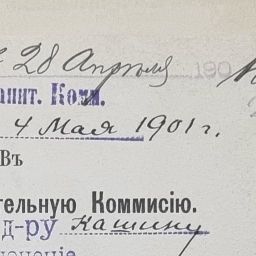 28 Апрѣля 190
Санит. Ком.
4 Мая 1901 г.
Въ
тельную Коммисію.
д-ру Кашину